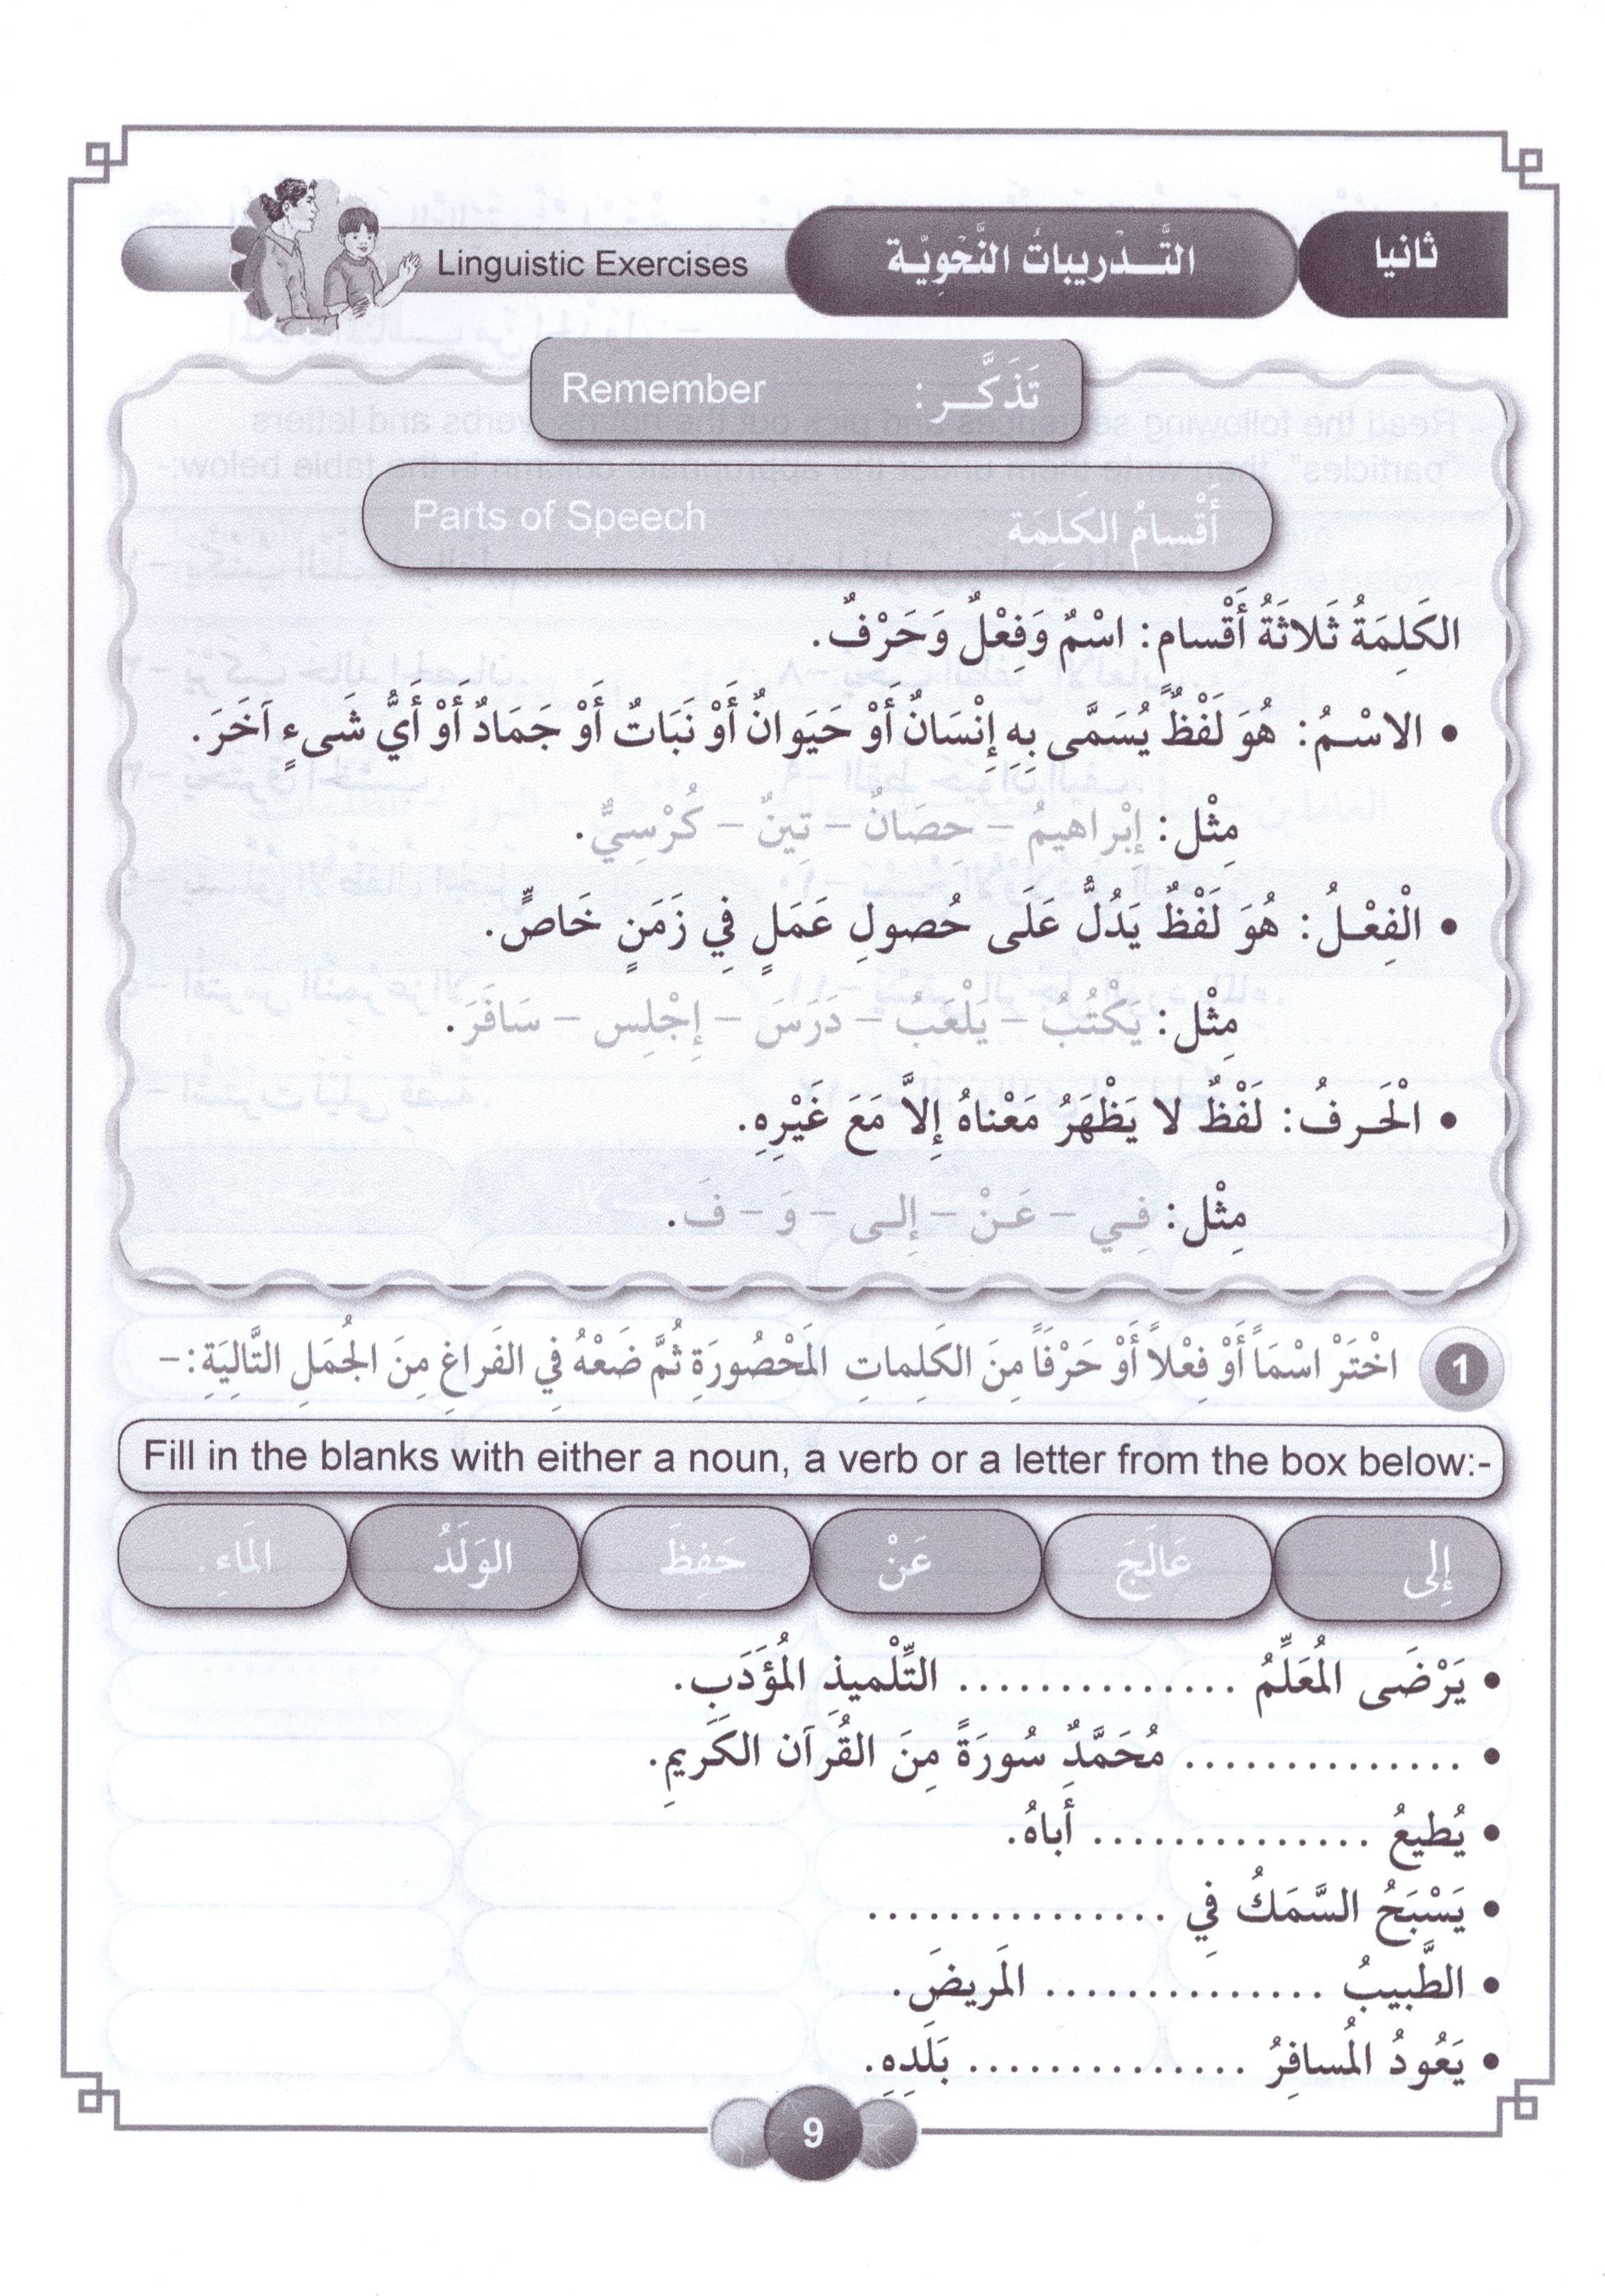 ثانيا
التَّـدْرِيباتُ النَّحْوِيّـة
Linguistic Exercises
تَذَكَّـر :
Remember
أَقْسامُ الكَلِمَة
Parts of Speech
الكَلِمَةُ ثَلاثَةُ أَقْسامٍ: اسْمٌ وَفِعْلٌ وَحَرْفٌ.
• الاسْـمُ: هُوَ لَفْظٌ يُسَمَّى بِهِ إِنْسَانٌ أَوْ حَيَوانٌ أَوْ نَبَاتٌ أَوْ جَمَادٌ أَوْ أَيُّ شَىءٍ آخَرَ.
مِثْل: إِبْراهيمُ – حِصَانٌ – تِينٌ – كُرْسِيٌّ.
• الْفِعْـلُ: هُوَ لَفْظٌ يَدُلُّ عَلَى حُصولِ عَمَلٍ فِي زَمَنٍ خَاصٍّ.
مِثْل: يَكْتُبُ – يَلْعَبُ – دَرَسَ – إِجْلِس – سَافَرَ.
• الْحَـرفُ: لَفْظٌ لا يَظْهَرُ مَعْناهُ إِلاَّ مَعَ غَيْرِهِ.
مِثْل: فِـي – عَـنْ – إِلـى – وَ – فَ.
1 اخْتَرْ اسْمَاً أَوْ فِعْلاً أَوْ حَرْفَاً مِنَ الكَلِماتِ المَحْصُورَةِ ثُمَّ ضَعْهُ فِي الفَراغِ مِنَ الجُمَلِ التَّالِيَةِ:-
Fill in the blanks with either a noun, a verb or a letter from the box below:-
إِلى عَالَجَ عَنْ حَفِظَ الوَلَدُ المَاءِ.
• يَرْضَى المُعَلِّمُ .............. التِّلْميذِ المُؤَدَبِ.
• .............. مُحَمَّدٌ سُورَةً مِنَ القُرآن الكَريمِ.
• يُطيعُ .............. أَباهُ.
• يَسْبَحُ السَّمَكُ فِي ...............
• الطَّبيبُ .............. المَريضَ.
• يَعُودُ المُسافِرُ .............. بَلَدِهِ.
9